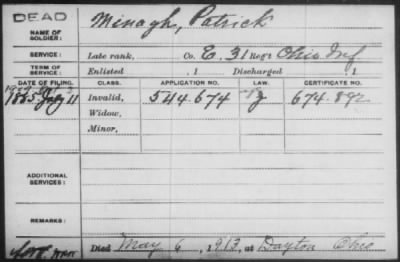 DEAD
NAME OF SOLDIER: Minagh, Patrick
SERVICE: Late rank, Co. E. 31 Reg't Ohio Inf
TERM OF SERVICE: Enlisted , 1 Discharged , 1
DATE OF FILING. CLASS. APPLICATION NO. LAW. CERTIFICATE NO.
1885 July 11 Invalid, 544.674 674.892
Widow,
Minor,
ADDITIONAL SERVICES:
REMARKS:
Died May 6, 1913, at Dayton Ohio